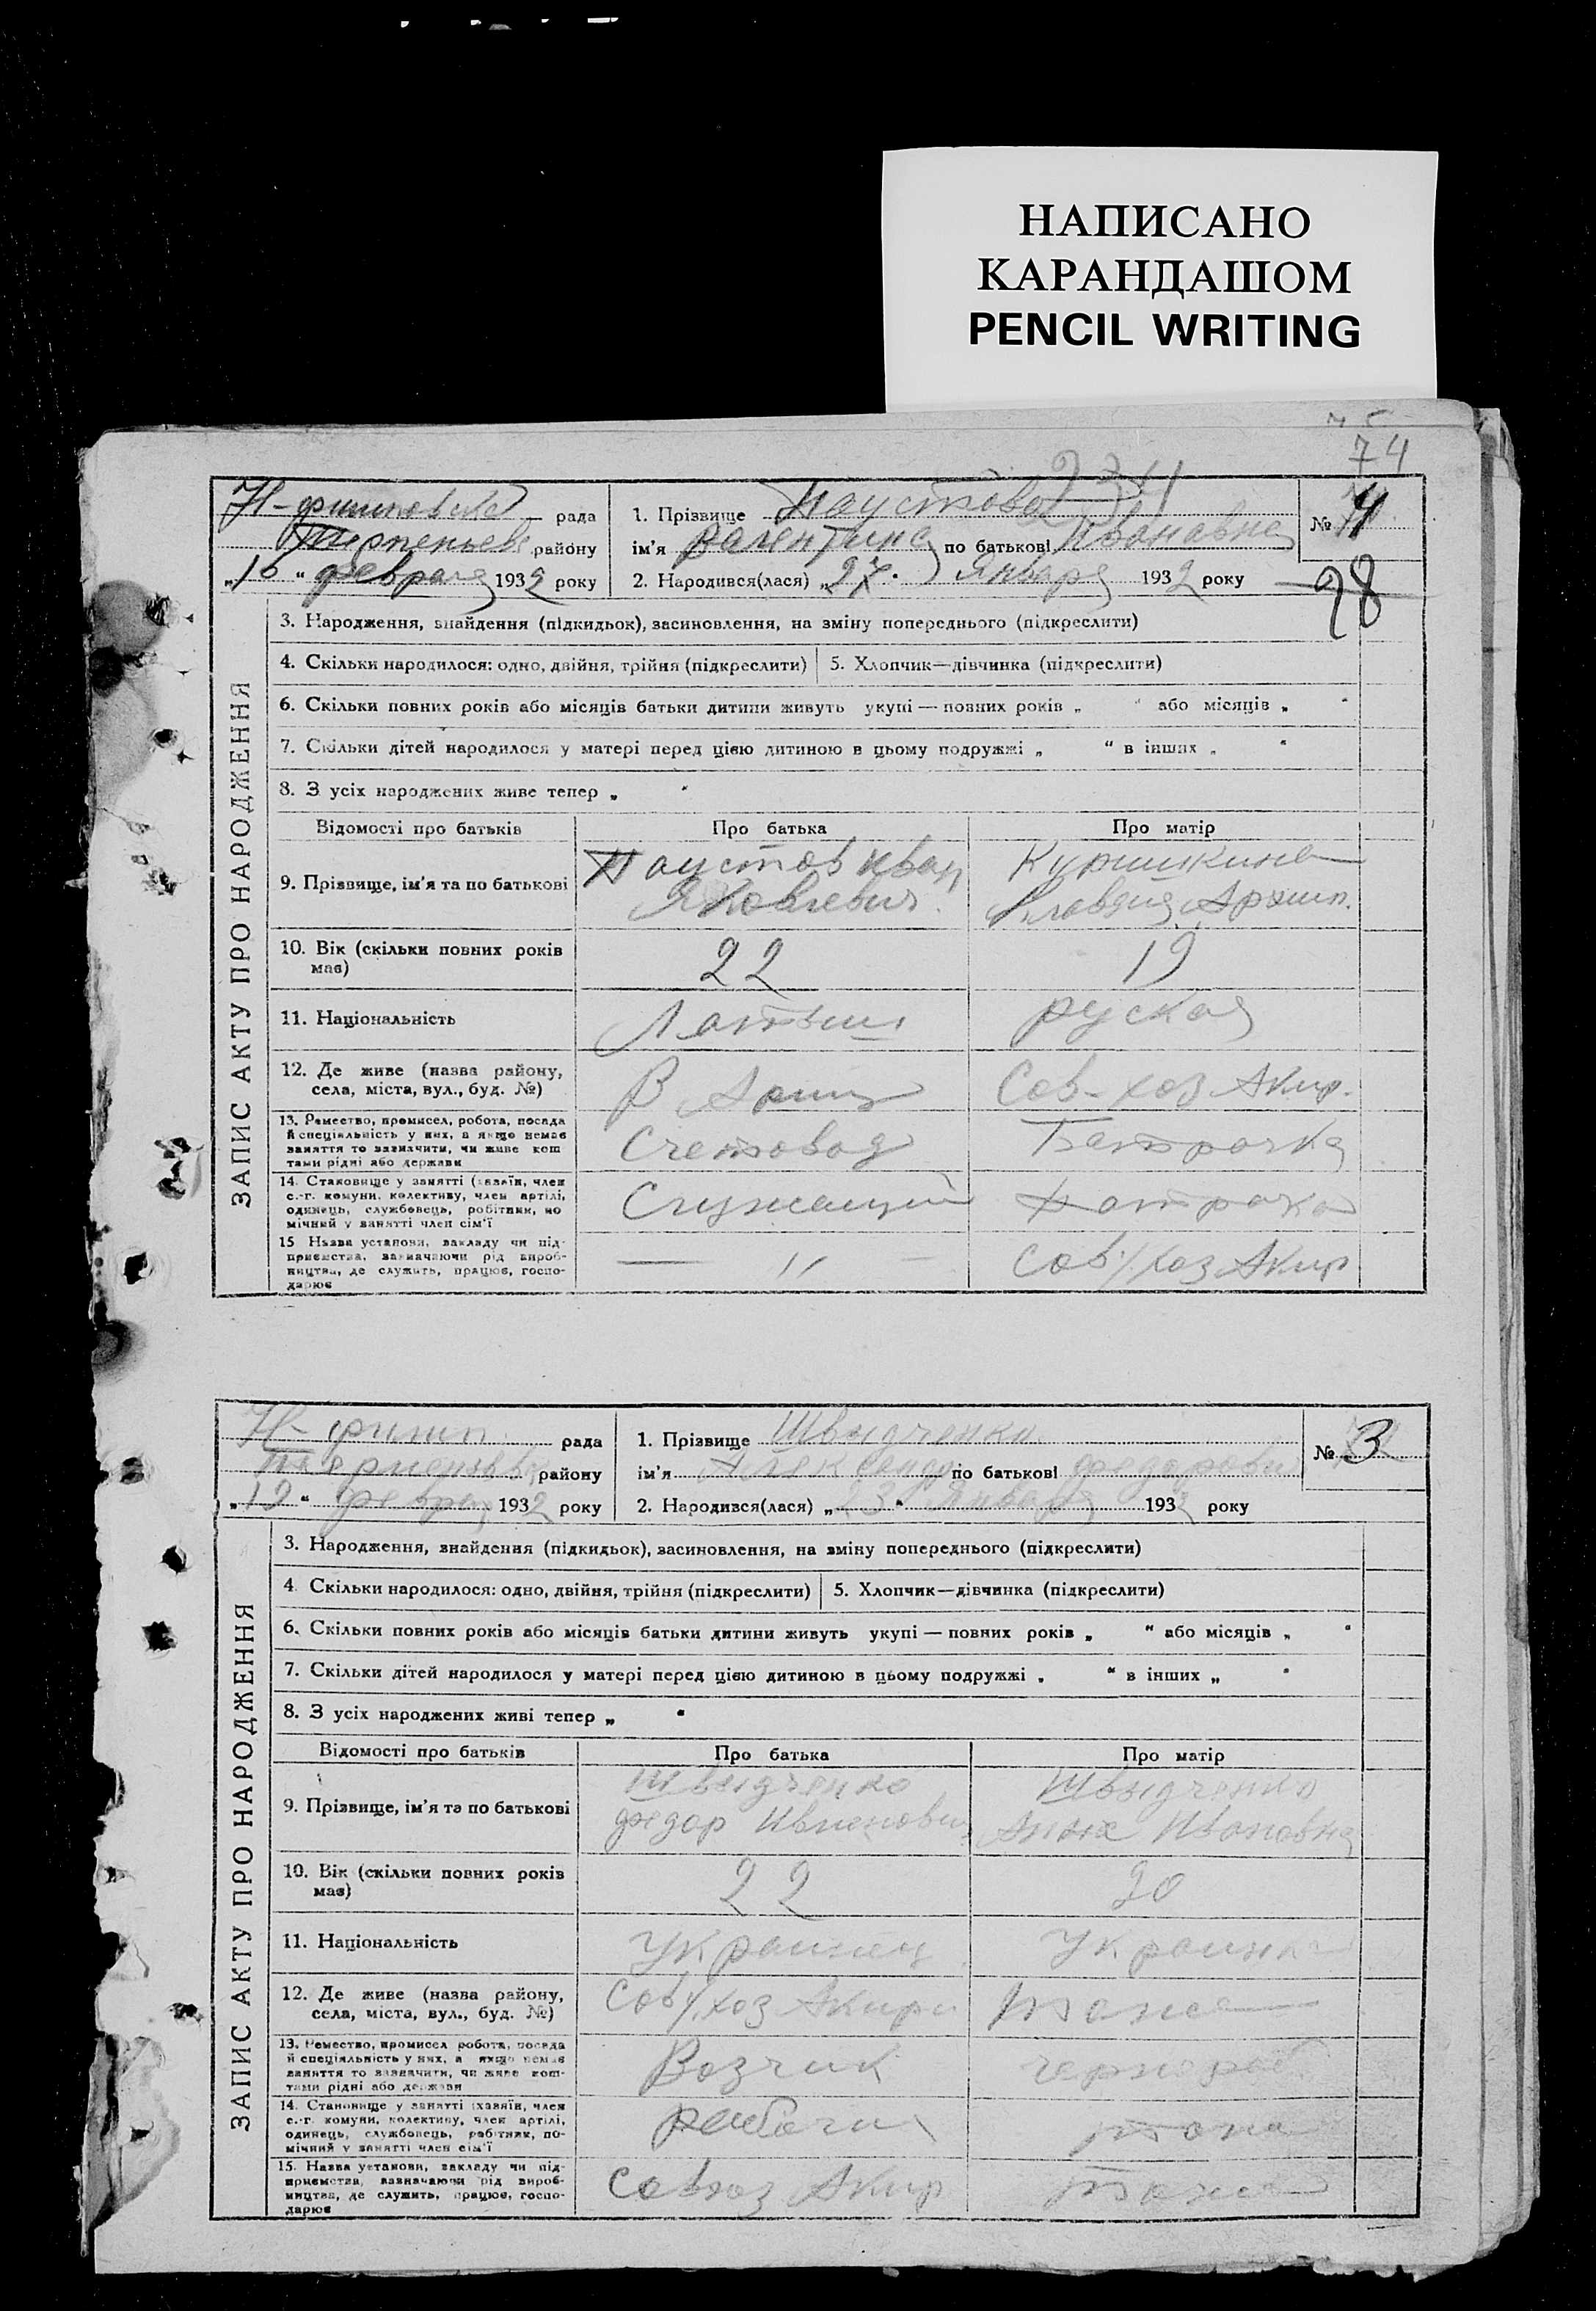 НАПИСАНО
КАРАНДАШОМ
PENCIL WRITING
74
234
рада
1. Прізвище Паустова
№ 4
району
ім'я Валентина по батькові Ивановна
„10“ февраля 1932 року
2. Народився(лася) „27“ Января 1932 року
28
ЗАПИС АКТУ ПРО НАРОДЖЕННЯ
3. Народження, знайдення (підкидьок), засиновлення, на зміну попереднього (підкреслити)
4. Скільки народилося: одно, двійня, трійня (підкреслити)
5. Хлопчик—дівчинка (підкреслити)
6. Скільки повних років або місяців батьки дитини живуть укупі — повних років „ “ або місяців „ “
7. Скільки дітей народилося у матері перед цією дитиною в цьому подружжі „ “ в інших „ “
8. З усіх народжених живе тепер „ “
Відомості про батьків
Про батька
Про матір
9. Прізвище, ім'я та по батькові
Паустов Иван
Яковлевич.
Куришкина
Клавдия Архип.
10. Вік (скільки повних років
має)
22
19
11. Національність
Латыш
руская
12. Де живе (назва району,
села, міста, вул., буд. №)
Сов-хоз Акир.
13. Ремество, промисел, робота, посада
й спеціяльність у них, а якщо немає
заняття то зазначити, чи живе кош
тами рідні або держави
Счетовод
Батрачка
14. Становище у занятті (хазяїн, член
с.-г. комуни, колективу, член артілі,
одинець, службовець, робітник, по
мічний у занятті член сім'ї
Служащий
батрачка
15 Назва установи, закладу чи під-
приємства, зазначаючи рід вироб-
ництва, де служить, працює, госпо-
дарює
— " —
Сов/хоз Акир
Н-филип. рада
1. Прізвище Швыдченко
№ 3
району
ім'я Александр по батькові Федорович
„19“ феврал 1932 року
2. Народився(лася) „23“ Января 1932 року
ЗАПИС АКТУ ПРО НАРОДЖЕННЯ
3. Народження, знайдення (підкидьок), засиновлення, на зміну попереднього (підкреслити)
4. Скільки народилося: одно, двійня, трійня (підкреслити)
5. Хлопчик—дівчинка (підкреслити)
6. Скільки повних років або місяців батьки дитини живуть укупі — повних років „ “ або місяців „ “
7. Скільки дітей народилося у матері перед цією дитиною в цьому подружжі „ “ в інших „ “
8. З усіх народжених живі тепер „ “
Відомості про батьків
Про батька
Про матір
9. Прізвище, ім'я та по батькові
Швыдченко
Федор
Швыдченко
Анна Ивановна
10. Вік (скільки повних років
має)
22
20
11. Національність
Украинец
Украинка
12. Де живе (назва району,
села, міста, вул., буд. №)
Сов/хоз Акири
тоже
13. Ремество, промисел робота, посада
й спеціяльність у них, а якщо немає
заняття то зазначити, чи живе кош-
тами рідні або держави
Возчик
чернораб
14. Становище у занятті (хазяїн, член
с.-г. комуни, колективу, член артілі,
одинець, службовець, робітник, по-
мічний у занятті член сім'ї
рабочи
тоже
15. Назва установи, закладу чи під-
приємства, зазначаючи рід вироб-
ництва, де служить, працює, госпо-
дарює
Совхоз Акир
Тоже